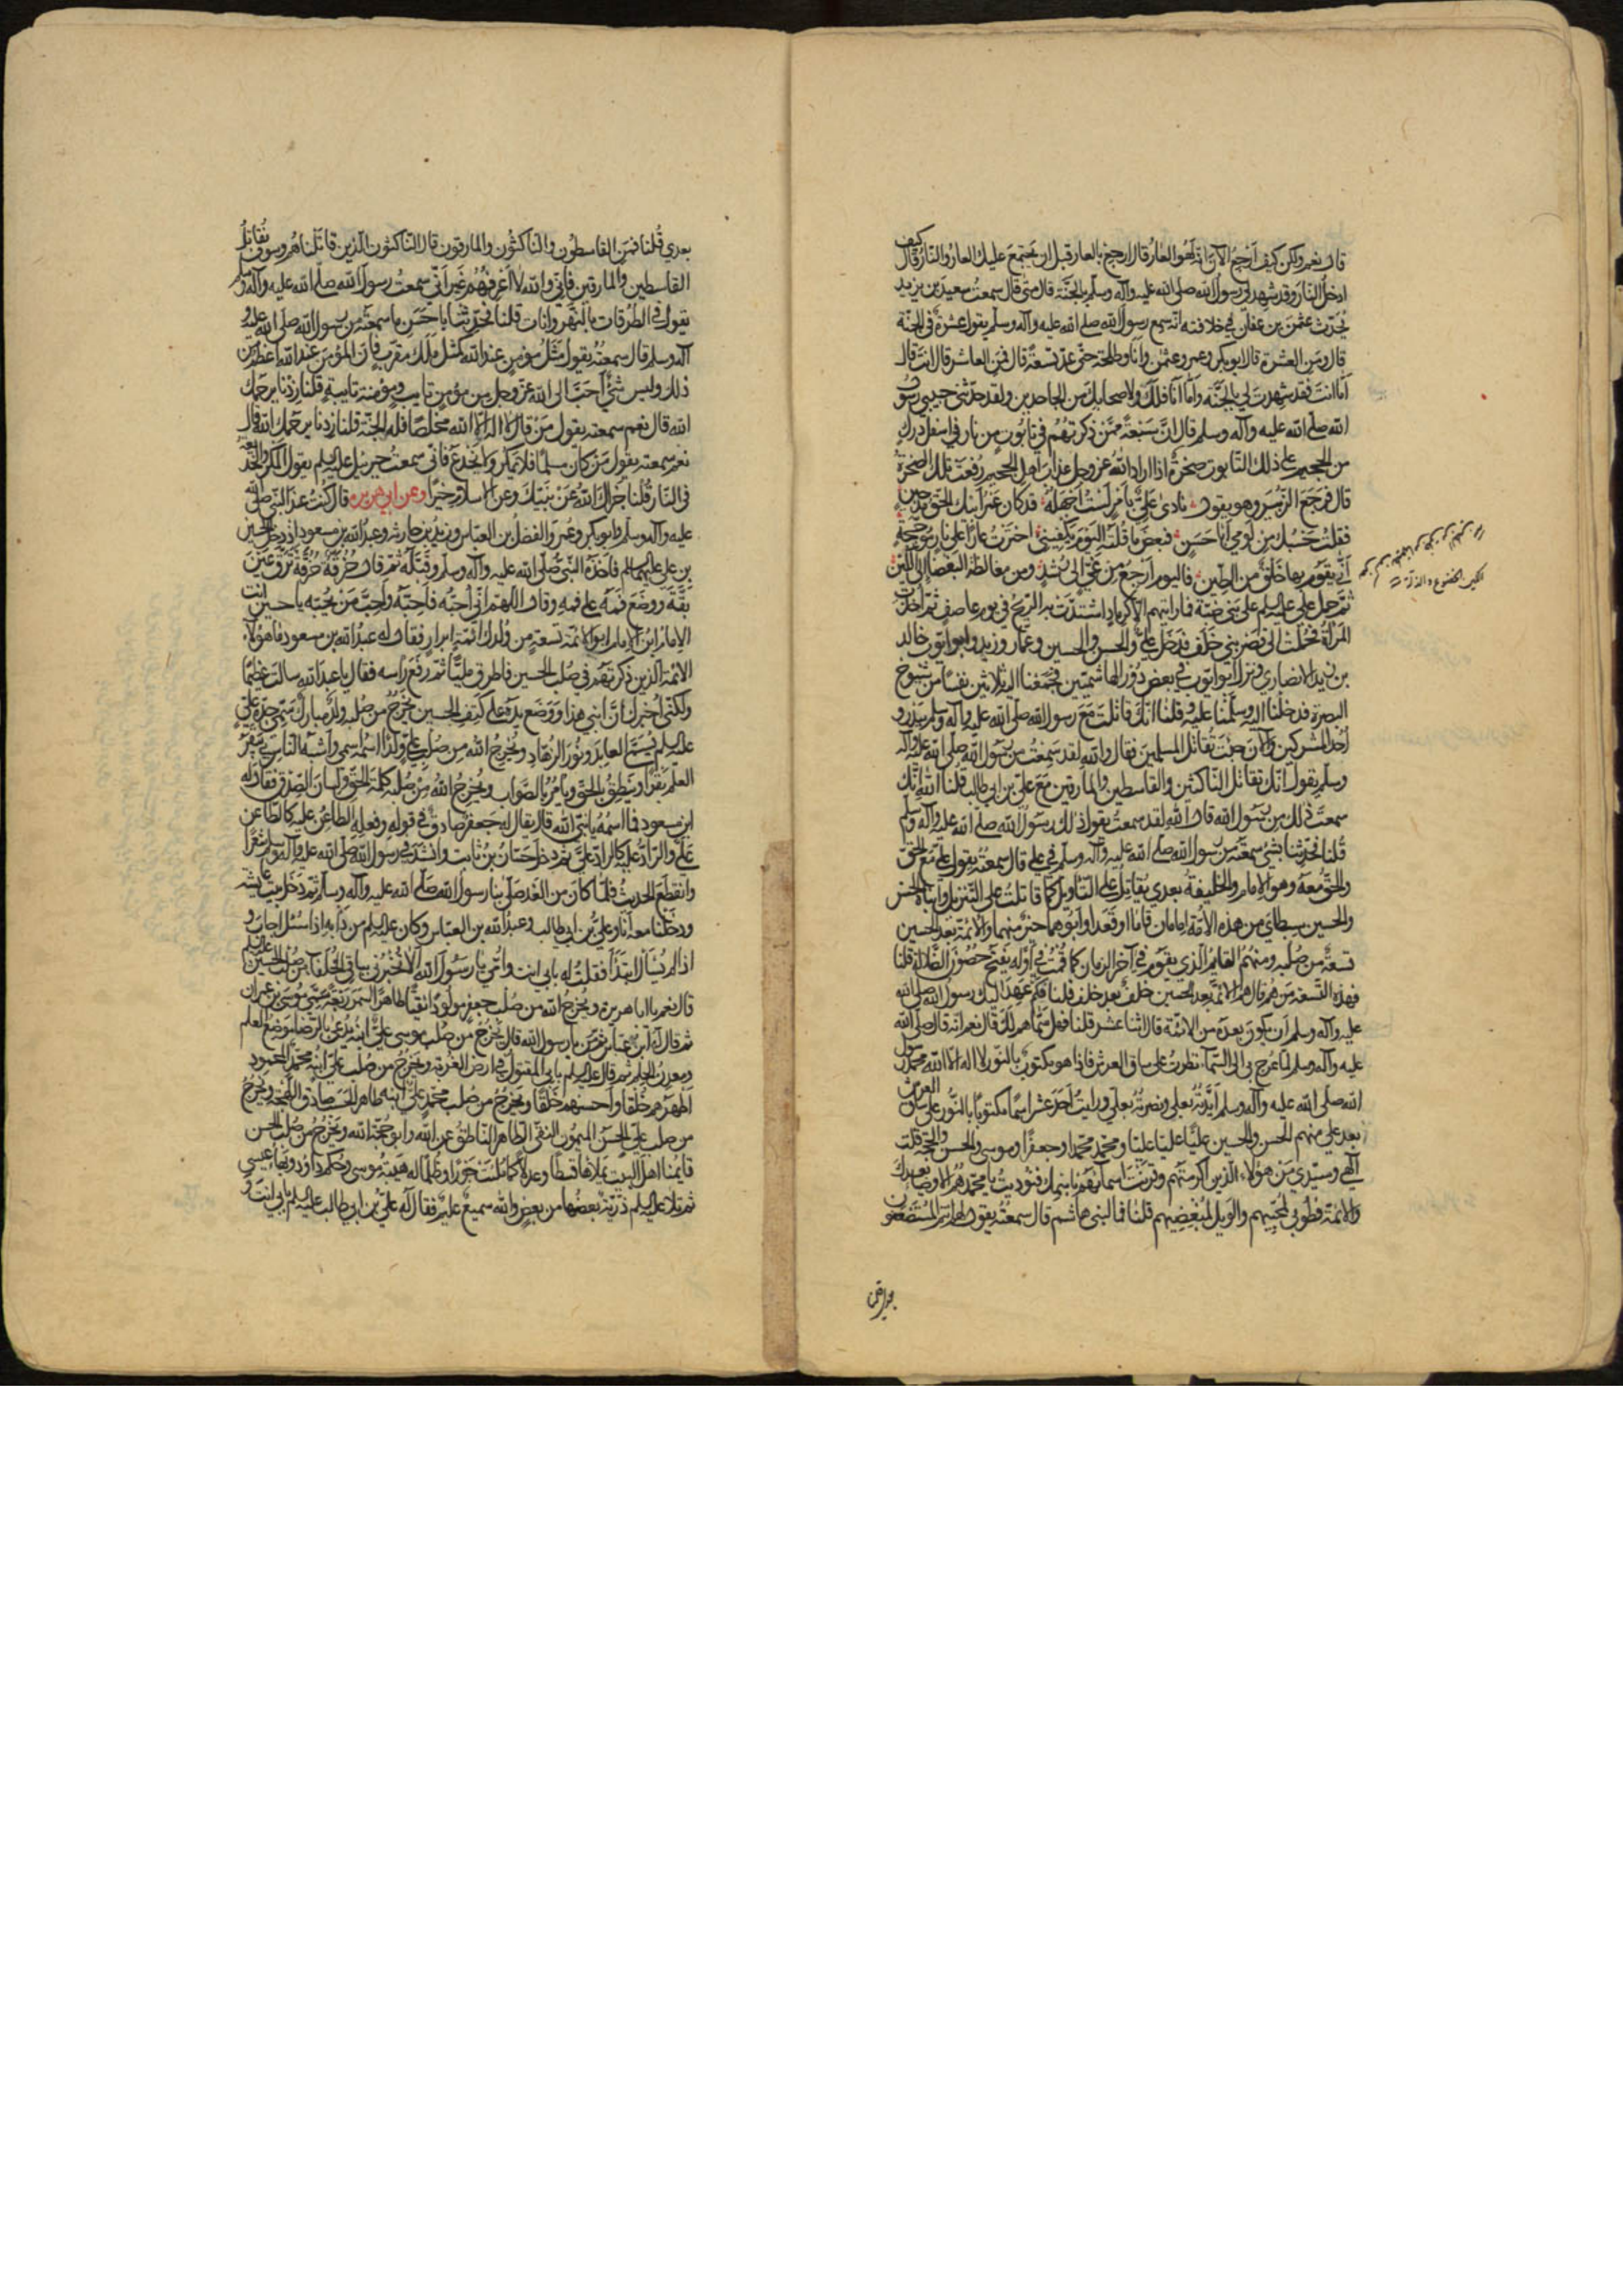 قال نعم ولكن كيف ارجع الآن انه لهو العار قال ارجع بالعار قبل ان يجتمع عليك العار والنار قال كيف
ادخل النار وقد شهد لي رسول الله صلى الله عليه وآله وسلم بالجنة قال متى قال سمعت سعيد بن يزيد
يحدث عثمن بن عفان في خلافته انه سمع رسول الله صلى الله عليه وآله وسلم يقول عشرة في الجنة
قال ومن العشرة قال ابو بكر وعمر وعثمن وانا وطلحة حتى عد تسعة قال فمن العاشر قال انت قال
اما انت فقد شهدت لي بالجنة واما انا فلك ولاصحابك من الجاحدين ولقد حدثني حبيبي رسول
الله صلى الله عليه وآله وسلم قال ان سبعة ممن ذكرتهم في تابوت من نار في اسفل درك
من الجحيم على ذلك التابوت صخرة اذا اراد الله عز وجل عذاب اهل الجحيم رفعت تلك الصخرة
قال فرجع الزبير وهو يقول نادى علي بامر لست اجهله قد كان عمر ابيك الحق مذ حين
فقلت حسبك من لومي ابا حسن فبعض ما قلته اليوم يكفيني اخترت عارا على نار مؤججة
انى يقوم بها خلق من الطين فاليوم ارجع من غي الى رشد ومن مغالطة البغضا الى اللين
ثم حمل علي عليه السلم على بني ضبة فما رايتهم الا كرماد اشتدت به الريح في يوم عاصف ثم اخذت
المراة فحملت الى قصر بني خلف فدخل علي والحسن والحسين وعمار وزيد وابو ايوب خالد
بن زيد الانصاري ونزل ابو ايوب في بعض دور الهاشميين فجمعنا اليه ثلاثين نفسا من شيوخ
البصرة فدخلنا اليه وسلمنا عليه وقلنا انك قاتلت مع رسول الله صلى الله عليه وآله وسلم ببدر و
احد المشركين والآن جئت تقاتل المسلمين فقال والله لقد سمعت من رسول الله صلى الله عليه وآله
وسلم يقول انك تقاتل الناكثين والقاسطين والمارقين مع علي بن ابي طالب قلنا الله انك
سمعت ذلك من رسول الله قال الله لقد سمعت يقول ذلك رسول الله صلى الله عليه وآله وسلم
قلنا فحدثنا بشئ سمعته من رسول الله صلى الله عليه وآله وسلم في علي قال سمعته يقول علي مع الحق
والحق معه وهو الامام والخليفة بعدي يقاتل على التاويل كما قاتلت على التنزيل وابناه الحسن
والحسين سبطاي من هذه الامة امامان قاما او قعدا وابوهما خير منهما والائمة بعد الحسين
تسعة من صلبه ومنهم القايم الذي يقوم في آخر الزمان كما قمت في اوله يفتح حصون الضلالة قلنا
فهذه التسعة من هم قال هم الائمة بعد الحسين خلف بعد خلف قلنا فكم عهد اليك رسول الله صلى الله
عليه وآله وسلم ان يكون بعده من الائمة قال اثنا عشر قلنا فهل سماهم لك قال نعم انه قال صلى الله
عليه وآله وسلم لما عرج بي الى السماء نظرت على ساق العرش فاذا هو مكتوب بالنور لا اله الا الله محمد رسول
الله صلى الله عليه وآله وسلم ايدته بعلي ونصرته بعلي ورايت احد عشر اسما مكتوبا بالنور على ساق العرش
بعد علي منهم الحسن والحسين عليا عليا عليا ومحمد محمدا وجعفرا وموسى والحسن والحجة قلت
الهي وسيدي من هؤلاء الذين اكرمتهم وقرنت اسماءهم باسمك فنوديت يا محمد هم الاوصياء بعدك
والائمة فطوبى لمحبيهم والويل لمبغضيهم قلنا فما لبني هاشم قال سمعته يقول لهم انتم المستضعفون
بعدي قلنا
بعدي قلنا فمن القاسطون والناكثون والمارقون قال الناكثون الذين قاتلناهم وسوف نقاتل
القاسطين والمارقين فاني والله لا اعرفهم غير اني سمعت رسول الله صلى الله عليه وآله وسلم
يقول في الطرقات بالنهروانات قلنا فحدثنا باحسن ما سمعته من رسول الله صلى الله عليه و
آله وسلم قال سمعته يقول مثل مؤمن عند الله كمثل ملك مقرب فان المؤمن عند الله اعظم من
ذلك وليس شئ احب الى الله عز وجل من مؤمن تايب ومؤمنة تايبة قلنا زدنا يرحمك
الله قال نعم سمعته يقول من قال لا اله الا الله مخلصا فله الجنة قلنا زدنا يرحمك الله قال
نعم سمعته يقول من كان مسلما فلا يمكر ولا يخدع فاني سمعت جبرئيل عليه السلم يقول المكر والخديعة
في النار قلنا جزاك الله عن نبيك وعن الاسلام خيرا وعن ابي هريره قال كنت عند النبي صلى الله
عليه وآله وسلم وابو بكر وعمر والفضل بن العباس وزيد بن حارثه وعبد الله بن مسعود اذ دخل الحسين
بن علي عليهما السلم فاخذه النبي صلى الله عليه وآله وسلم وقبله ثم قال حزقة حزقة ترق عين
بقة ووضع فمه على فمه وقال اللهم اني احبه فاحبه واحب من يحبه يا حسين انت
الامام ابن الامام ابو الائمة تسعة من ولدك ائمة ابرار فقال له عبد الله بن مسعود ما هؤلاء
الائمة الذين ذكرتهم في صلب الحسين فاطرق مليا ثم رفع راسه فقال يا عبد الله سالت عظيما
ولكني اخبرك ان ابني هذا ووضع يده على كتف الحسين يخرج من صلبه ولد مبارك سمي جده علي
عليه السلم يسمى العابد ونور الزهاد ويخرج الله من صلب علي ولدا اسمه اسمي واشبه الناس بي يبقر
العلم بقرا وينطق بالحق ويامر بالصواب ويخرج الله من صلبه كلمة الحق ولسان الصدق فقال له
ابن مسعود فما اسمه يا نبي الله قال يقال له جعفر صادق في قوله وفعله الطاعن عليه كالطاعن
علي والراد عليه كالراد علي ثم دخل حسان بن ثابت وانشد في رسول الله صلى الله عليه وآله وسلم شعرا
وانقطع الحديث فلما كان من الغد صلى بنا رسول الله صلى الله عليه وآله وسلم ثم دخل بيت عايشة
ودخلنا معه انا وعلي بن ابي طالب وعبد الله بن العباس وكان عليه السلم من دابه اذا سئل اجاب و
اذا لم يسال ابتدا فقلت له بابي انت وامي يا رسول الله الا تخبرني بباقي الخلفاء من صلب الحسين عليه السلم
قال نعم يا ابا هريرة ويخرج الله من صلب جعفر مولودا نقيا طاهرا اسمر ربعة سمي موسى بن عمران
ثم قال له ابن عباس ثم من يا رسول الله قال يخرج من صلب موسى علي ابنه يدعى بالرضا موضع العلم
ومعدن الحلم ثم قال عليه السلم بابي المقتول في ارض الغربة ويخرج من صلب علي ابنه محمد المحمود
اطهرهم خلقا واحسنهم خلقا ويخرج من صلب محمد علي ابنه طاهر الحسب صادق اللهجة ويخرج
من صلب علي الحسن الميمون النقي الطاهر الناطق عن الله وابو حجة الله ويخرج من صلب الحسن
قايمنا اهل البيت يملاها قسطا وعدلا كما ملئت جورا وظلما له هيبة موسى وحكم داود وبهاء عيسى
ثم تلا عليه السلم ذرية بعضها من بعض والله سميع عليم فقال له علي بن ابي طالب عليه السلم بابي انت و